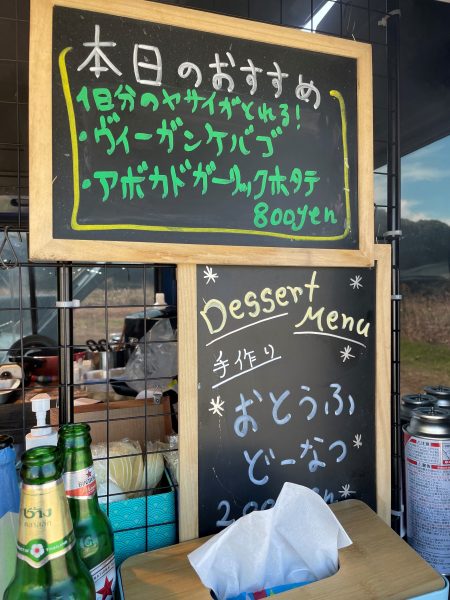 本日のおすすめ
1日分のヤサイがとれる!
・ヴィーガンケバブ
・アボカドガーリックホタテ
800yen
Dessert
Menu
手作り
おとうふ
どーなつ
ช้าง
คลาสสิก